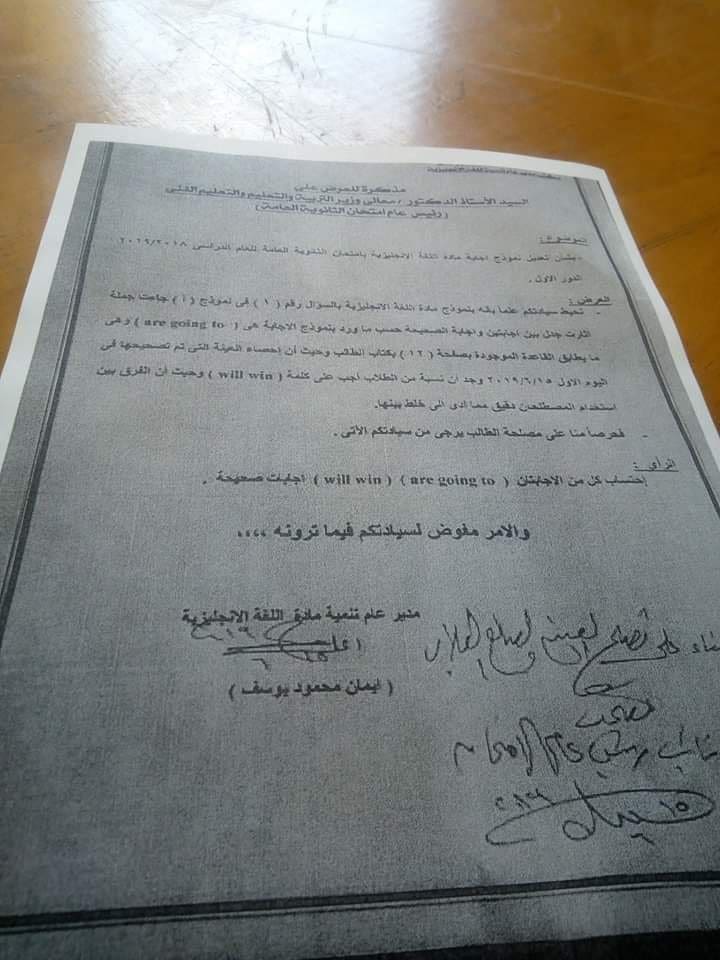 مذكرة للعرض على
السيد الأستاذ الدكتور / معالى وزير التربية والتعليم والتعليم الفنى
( رئيس عام امتحان الثانوية العامة )
الموضوع :
- بشأن تعديل نموذج اجابة مادة اللغة الانجليزية بامتحان الثانوية العامة للعام الدراسى ٢٠١٩/٢٠١٨
الدور الاول .
العرض :
- نحيط سيادتكم علما بانه بنموذج مادة اللغة الانجليزية بالسؤال رقم ( ١ ) فى نموذج ( أ ) جاءت جملة
اثارت جدل بين اجابتين واجابة الصحيحة حسب ما ورد بنموذج الاجابة هى ( are going to ) وهى
ما يطابق القاعدة الموجودة بصفحة ( ١٢ ) بكتاب الطالب وحيث أن إحصاء العينة التى تم تصحيحها فى
اليوم الاول ٢٠١٩/٦/١٥ وجد ان نسبة من الطلاب أجب على كلمة ( will win ) وحيث أن الفرق بين
استخدام المصطلحان دقيق مما أدى الى خلط بينها.
- فحرصاً منا على مصلحة الطالب يرجى من سيادتكم الأتى .
الرأى :
إحتساب كل من الاجابتان ( are going to ) ( will win ) اجابات صحيحة .
والامر مفوض لسيادتكم فيما ترونه ،،،،
مدير عام تنمية مادة اللغة الإنجليزية
( ايمان محمود يوسف )
العينة
نائب رئيس عام الامتحان